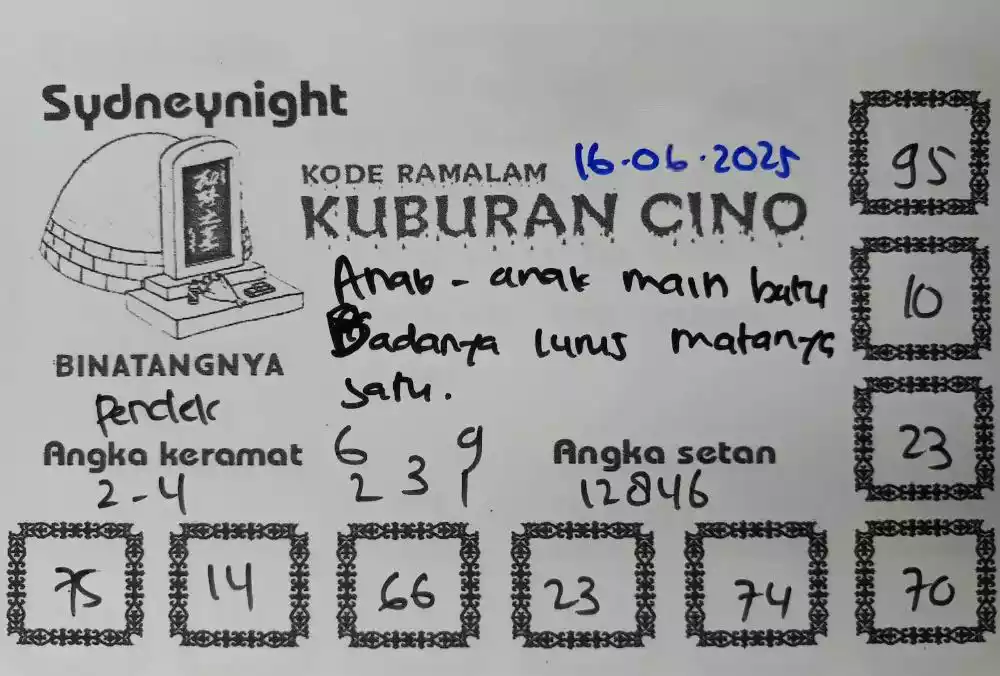 Sydneynight
KODE RAMALAM 16.06.2025
KUBURAN CINO
Anak - anak main batu
Badanya lurus matanya
satu.
BINATANGNYA
Pendek
Angka keramat
2-4
6 9
2 3 1
Angka setan
12846
95
10
23
75 14 66 23 74 70